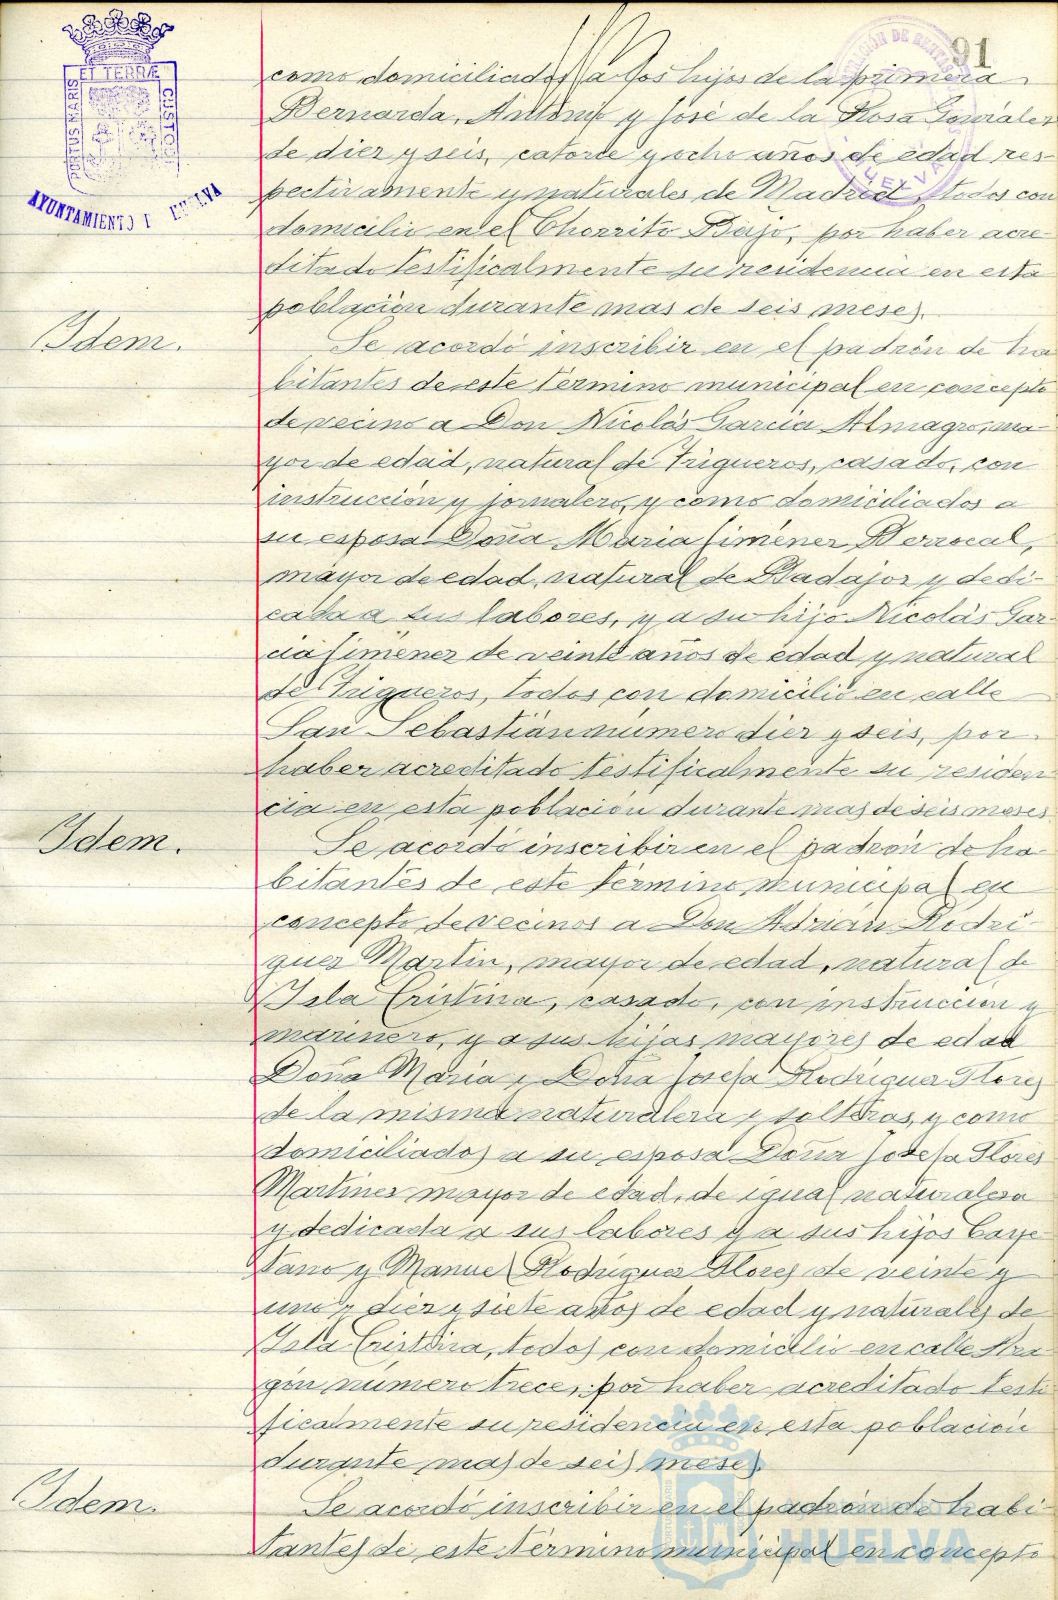 91
ET TERRÆ
PORTUS MARIS
CUSTOD
AYUNTAMIENTO HUELVA
HUELVA
como domiciliados a los hijos de la primera
Bernarda, Antonio y José de la Rosa González
de diez y seis, catorce y ocho años de edad res-
pectivamente y naturales de Madrid, todos con
domicilio en el Chorrito Bajo, por haber acre-
ditado testificalmente su residencia en esta
población durante mas de seis meses.
Idem.
Se acordó inscribir en el padrón de ha-
bitantes de este término municipal en concepto
de vecino a Don Nicolás Garcia Almagro, ma-
yor de edad, natural de Trigueros, casado, con
instrucción y jornalero, y como domiciliados a
su esposa Doña Maria Jiménez Berrocal,
mayor de edad, natural de Badajoz y dedi-
cada a sus labores, y a su hijo Nicolás Gar-
cia Jiménez de veinte años de edad y natural
de Trigueros, todos con domicilio en calle
San Sebastián número diez y seis, por
haber acreditado testificalmente su residen
cia en esta población durante mas de seis meses
Idem.
Se acordó inscribir en el padrón de ha-
bitantes de este término municipal en
concepto de vecinos a Don Adrián Rodri-
guez Martin, mayor de edad, natural de
Isla Cristina, casado, con instrucción y
marinero, y a sus hijas mayores de edad
Doña Maria y Doña Josefa Rodriguez Flores
de la misma naturaleza y solteras, y como
domiciliados a su esposa Doña Josefa Flores
Martinez mayor de edad, de igual naturaleza
y dedicada a sus labores y a sus hijos Caye
tano y Manuel Rodriguez Flores de veinte y
uno y diez y siete años de edad y naturales de
Isla Cristina, todos con domicilio en calle Ara
gón número trece, por haber acreditado testi
ficalmente su residencia en esta población
durante mas de seis meses.
Idem.
Se acordó inscribir en el padrón de habi
tantes de este término municipal en concepto
HUELVA